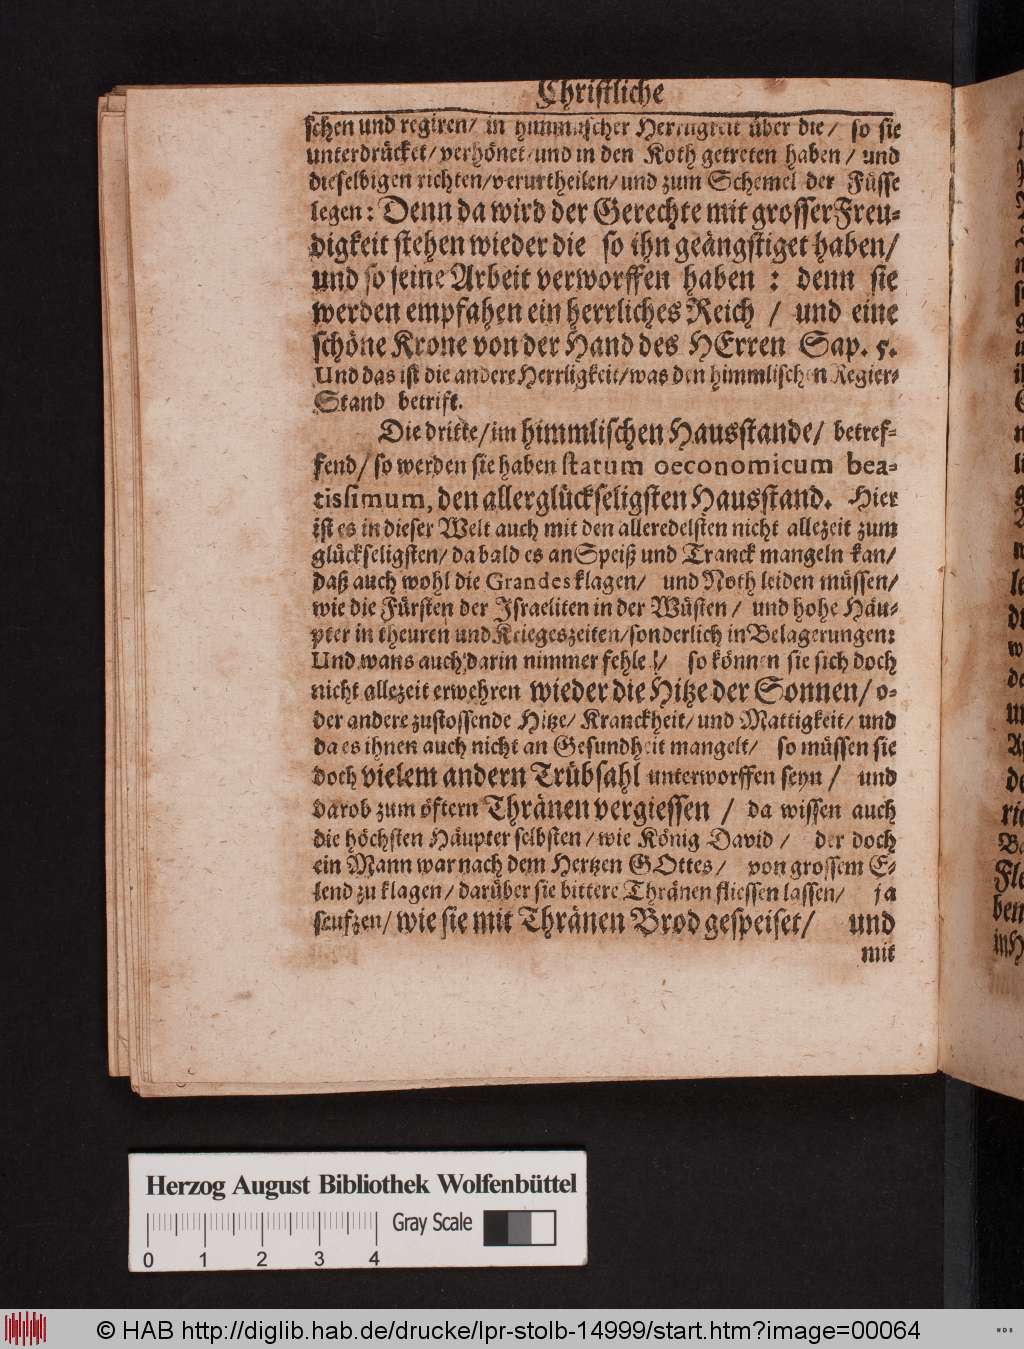 Christliche
schen und regiren/ in himmlischer Herrligkeit über die/ so sie
unterdrücket/ verhönet/ und in den Koth getreten haben/ und
dieselbigen richten/ verurtheilen/ und zum Schemel der Füsse
legen: Denn da wird der Gerechte mit grosser Freu-
digkeit stehen wieder die so ihn geängstiget haben/
und so seine Arbeit verworffen haben: denn sie
werden empfahen ein herrliches Reich / und eine
schöne Krone von der Hand des HErren Sap. 5.
Und das ist die andere Herrligkeit/ was den himmlischen Regier-
Stand betrift.
Die dritte/ im himmlischen Hausstande/ betref-
fend/ so werden sie haben statum oeconomicum bea-
tissimum, den allerglückseligsten Hausstand. Hier
ist es in dieser Welt auch mit den alleredelsten nicht allezeit zum
glückseligsten/ da bald es an Speiß und Tranck mangeln kan/
daß auch wohl die Grandes klagen/ und Noth leiden müssen/
wie die Fürsten der Israeliten in der Wüsten/ und hohe Häu-
pter in theuren und Kriegeszeiten/ sonderlich in Belagerungen:
Und wans auch darin nimmer fehle/ so können sie sich doch
nicht allezeit erwehren wieder die Hitze der Sonnen/ o-
der andere zustossende Hitze/ Kranckheit/ und Mattigkeit/ und
da es ihnen auch nicht an Gesundheit mangelt/ so müssen sie
doch vielem andern Trübsahl unterworffen seyn/ und
darob zum öftern Thränen vergiessen / da wissen auch
die höchsten Häupter selbsten/ wie König David/ der doch
ein Mann war nach dem Hertzen GOttes/ von grossem E-
lend zu klagen/ darüber sie bittere Thränen fliessen lassen/ ja
seufzen/ wie sie mit Thränen Brod gespeiset/ und
mit
Herzog August Bibliothek Wolfenbüttel
Gray Scale
0 1 2 3 4
© HAB http://diglib.hab.de/drucke/lpr-stolb-14999/start.htm?image=00064